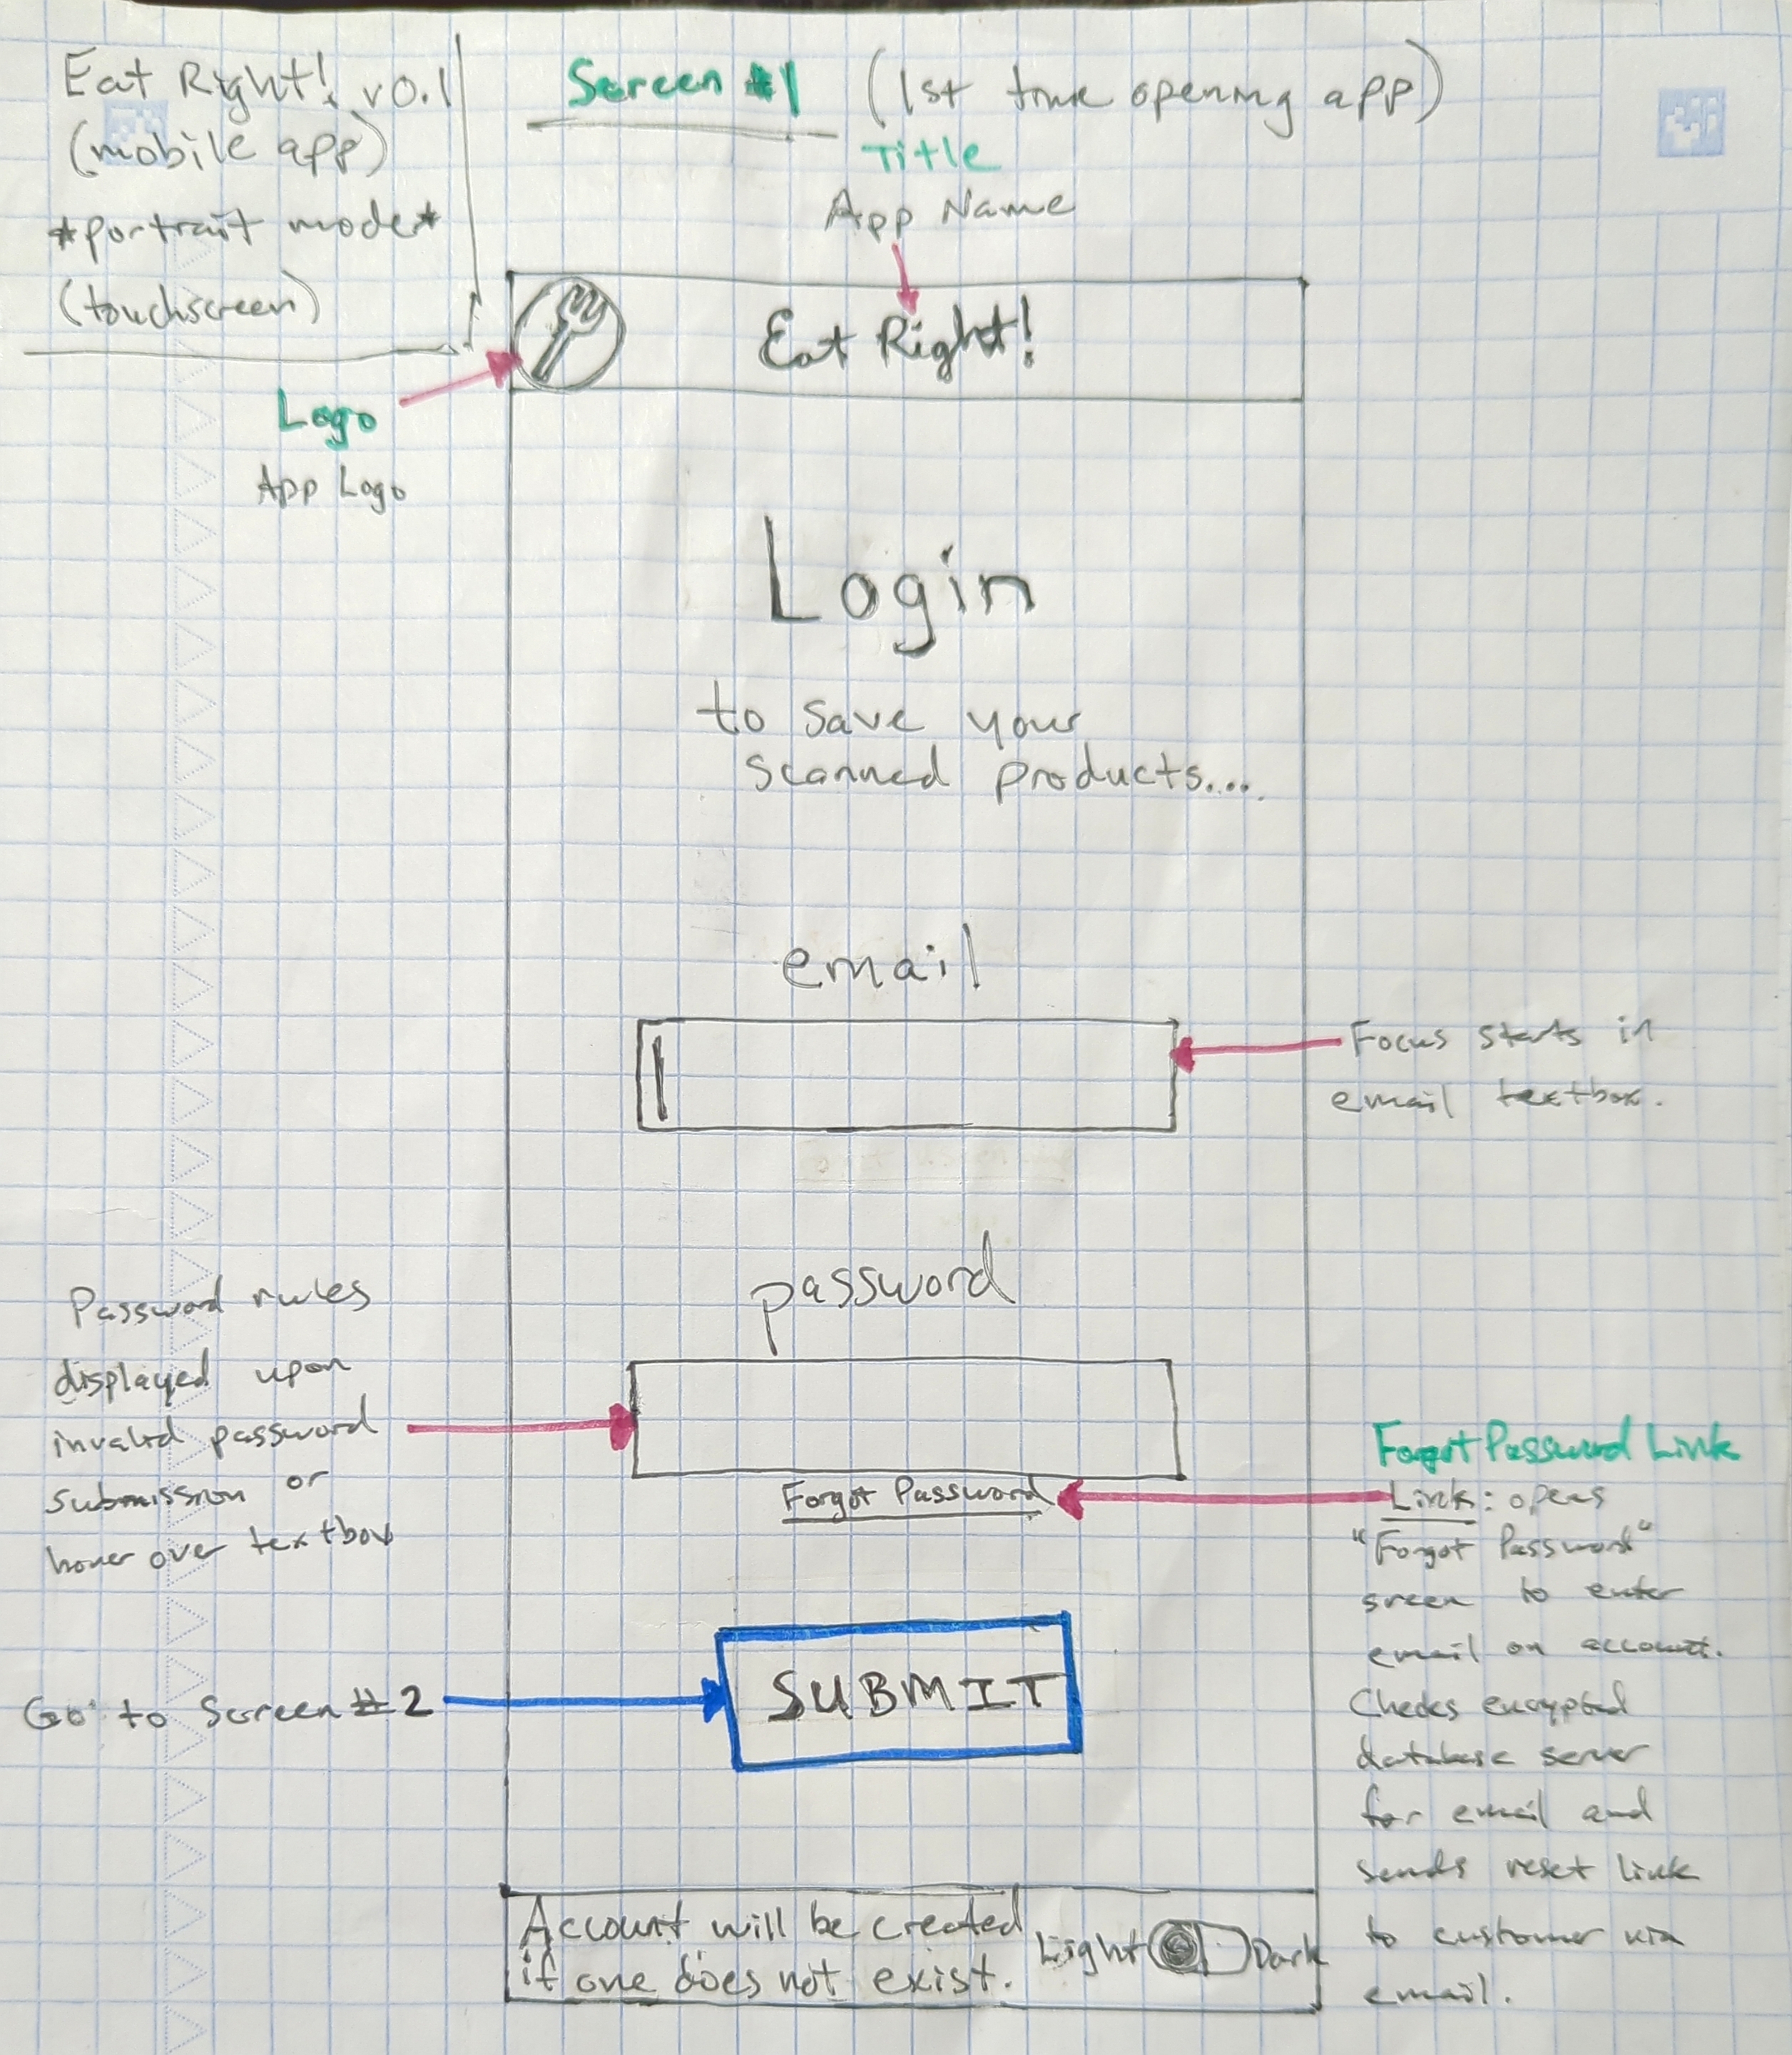 Eat Right! v0.1
(mobile app)
*portrait mode*
(touchscreen)
Screen #1 (1st time opening app)
Title
App Name
Eat Right!
Logo
App Logo
Login
to save your
scanned products....
email
Focus starts in
email textbox.
password
Password rules
displayed upon
invalid password
submission or
hover over textbox
Forgot Password
Forgot Password Link
Link: opens
"Forgot Password"
sreen to enter
email on account.
Checks encrypted
database server
for email and
sends reset link
to customer via
email.
SUBMIT
Go to Screen #2
Account will be created
if one does not exist.
Light Dark